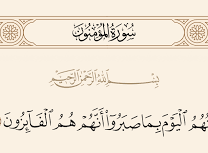 سُورَةُ الْمُؤْمِنُونَ
بِسْمِ اللَّهِ الرَّحْمَٰنِ الرَّحِيمِ
ـتُهُمُ ٱلْيَوْمَ بِمَا صَبَرُوٓا۟ أَنَّهُمْ هُمُ ٱلْفَآئِزُونَ